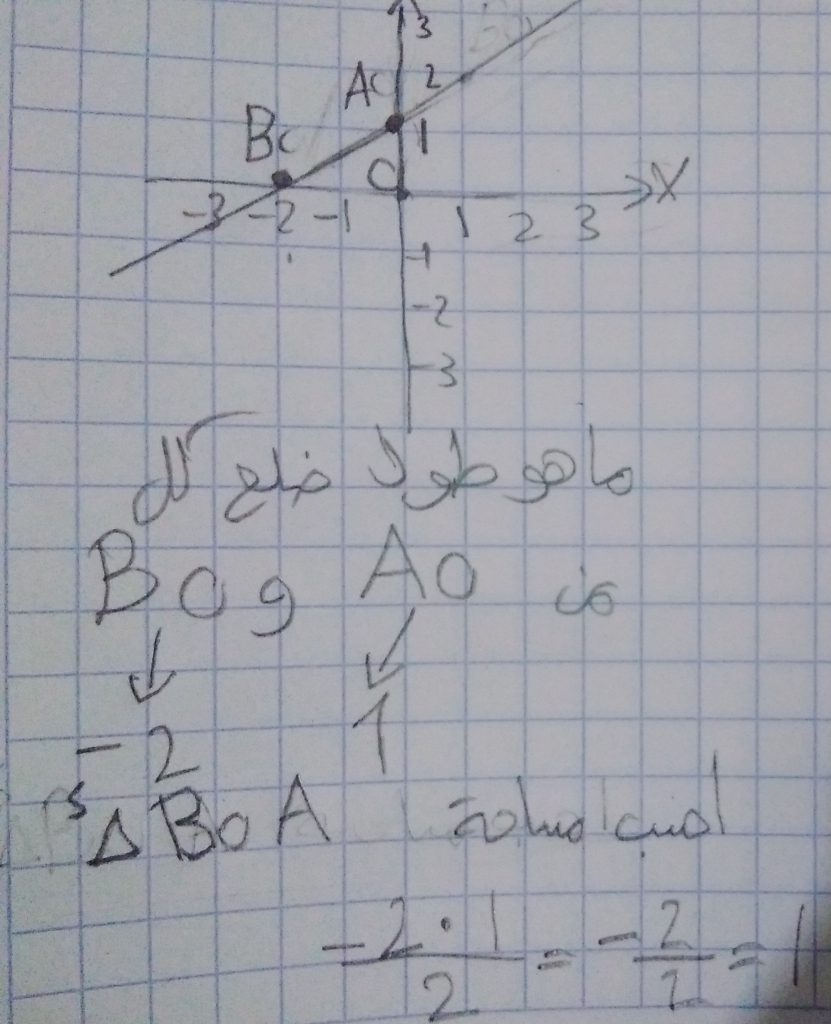 3
A 2
B 1
O X
-3 -2 -1 1 2 3
-1
-2
-3
ما هو طول ضلع كل
من AO و BO
-2 1
احسب مساحة S ΔBOA
-2·1/2 = -2/2 = 1